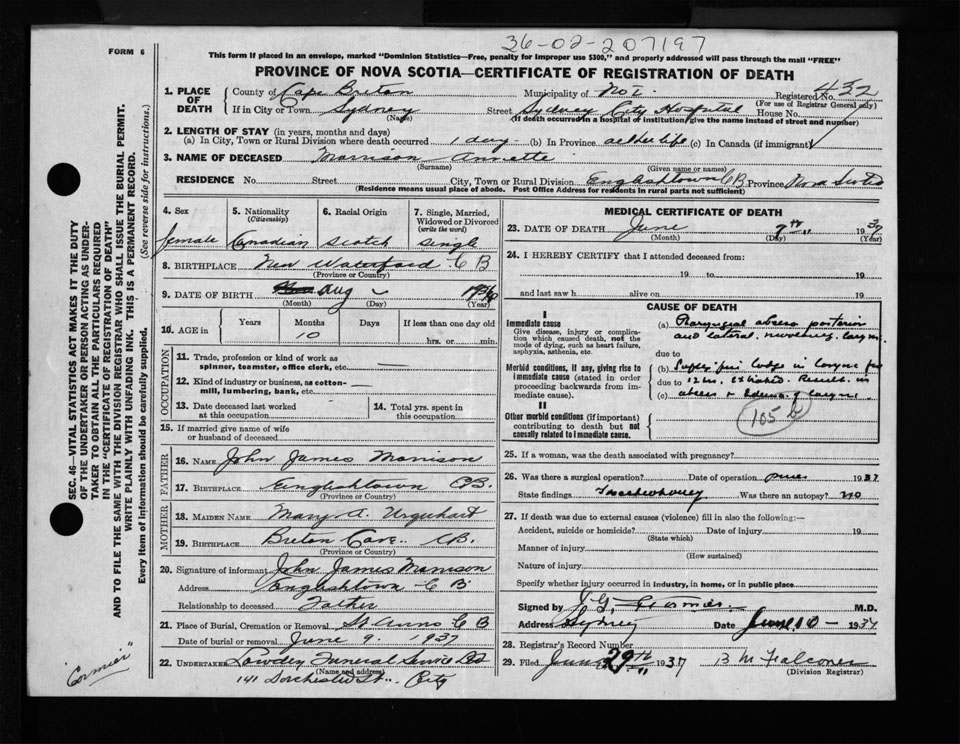 36-02-207197
FORM 6
This form if placed in an envelope, marked "Dominion Statistics—Free, penalty for improper use $300," and properly addressed will pass through the mail "FREE"
PROVINCE OF NOVA SCOTIA—CERTIFICATE OF REGISTRATION OF DEATH
1. PLACE OF DEATH
County of Cape Breton Municipality of No I. Registered No. 432
(For use of Registrar General only)
If in City or Town Sydney Street Sydney City Hospital House No.
(Name) (If death occurred in a hospital or institution, give the name instead of street and number)
2. LENGTH OF STAY (in years, months and days)
(a) In City, Town or Rural Division where death occurred 1 day (b) In Province all her life (c) In Canada (if immigrant)
3. NAME OF DECEASED Morrison Annette
(Surname) (Given name or names)
RESIDENCE No. Street City, Town or Rural Division Englishtown C B Province Nova Scotia
(Residence means usual place of abode. Post Office Address for residents in rural parts not sufficient)
4. Sex 5. Nationality 6. Racial Origin 7. Single, Married, Widowed or Divorced
(Citizenship) (write the word)
female Canadian Scotch Single
8. BIRTHPLACE New Waterford C B
(Province or Country)
9. DATE OF BIRTH Aug 1936
(Month) (Day) (Year)
10. AGE in Years Months Days If less than one day
10 hrs. or min.
OCCUPATION
11. Trade, profession or kind of work as spinner, teamster, office clerk, etc. —
12. Kind of industry or business, as cotton-mill, lumbering, bank, etc. —
13. Date deceased last worked at this occupation
14. Total yrs. spent in this occupation
15. If married give name of wife or husband of deceased
FATHER
16. NAME John James Morrison
17. BIRTHPLACE Englishtown CB.
(Province or Country)
MOTHER
18. MAIDEN NAME Mary A. Urquhart
19. BIRTHPLACE Breton Cove CB.
(Province or Country)
20. Signature of informant John James Morrison
Address Englishtown C B
Relationship to deceased Father
21. Place of Burial, Cremation or Removal St Anns C B
Date of burial or removal June 9. 1937
22. UNDERTAKER Lowden Funeral Service Ltd
(Name and address)
141 Dorchester St. City
MEDICAL CERTIFICATE OF DEATH
23. DATE OF DEATH June 7th 1937
(Month) (Day) (Year)
24. I HEREBY CERTIFY that I attended deceased from:
19 to 19
and last saw h alive on 19
CAUSE OF DEATH
I
Immediate cause
Give disease, injury or complication which caused death, not the mode of dying, such as heart failure, asphyxia, asthenia, etc.
(a) Pharyngeal abscess posterior
and lateral
due to
Morbid conditions, if any, giving rise to immediate cause (stated in order proceeding backwards from immediate cause).
(b) Safety pin lodge in larynx for
due to 12 hrs. Extracted. Result. in
(c) abscess + Edema of larynx.
II
Other morbid conditions (if important) contributing to death but not causally related to immediate cause.
105 b
25. If a woman, was the death associated with pregnancy?
26. Was there a surgical operation? Date of operation June 1937
State findings Was there an autopsy? no
27. If death was due to external causes (violence) fill in also the following:—
Accident, suicide or homicide? Date of injury 19
(State which)
Manner of injury
(How sustained)
Nature of injury
Specify whether injury occurred in industry, in home, or in public place
Signed by M.D.
Address Sydney Date June 10 - 1937
28. Registrar's Record Number
29. Filed June 29th 1937 B M Falconer
(Division Registrar)
SEC. 46—VITAL STATISTICS ACT MAKES IT THE DUTY OF THE UNDERTAKER OR PERSON ACTING AS UNDERTAKER TO OBTAIN ALL THE PARTICULARS REQUIRED IN THE "CERTIFICATE OF REGISTRATION OF DEATH"
AND TO FILE THE SAME WITH THE DIVISION REGISTRAR WHO SHALL ISSUE THE BURIAL PERMIT.
WRITE PLAINLY WITH UNFADING INK. THIS IS A PERMANENT RECORD.
Every item of information should be carefully supplied. (See reverse side for instructions.)
"Cormier"